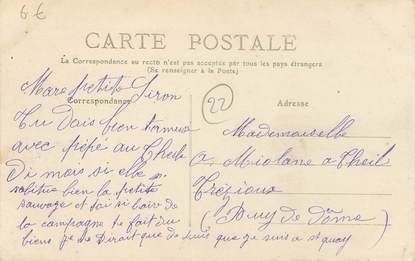 6€
CARTE POSTALE
La Correspondance au recto n'est pas acceptée par tous les pays étrangers
(Se renseigner à la Poste)
Correspondance
Adresse
22
petite
Tu dois bien
avec pépé au Cheih
Di mois si elle se
bien la petite
sauvage et si
la campagne te fait du
biens je te Dirait que je suis a st quay
Mademoiselle
a Miolane a Cheil
Trézioux
(Puy de Dôme)